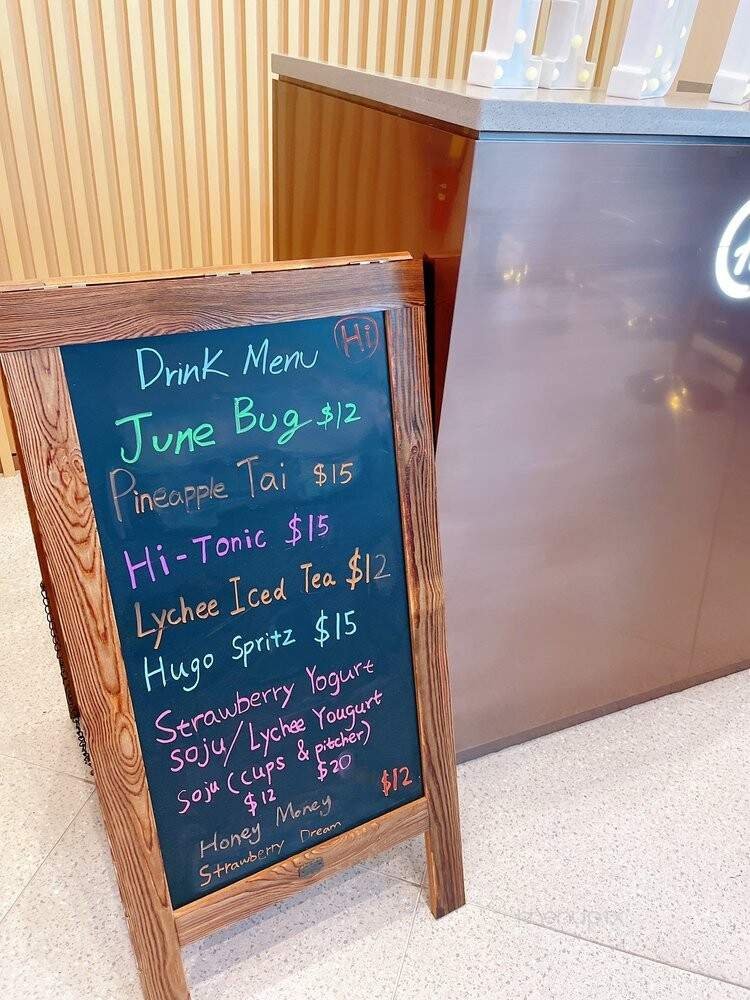 Drink Menu Hi
June Bug $12
Pineapple Tai $15
Hi-Tonic $15
Lychee Iced Tea $12
Hugo Spritz $15
Strawberry Yogurt
Soju/Lychee Yougurt
Soju (cups & pitcher)
$12 $20
Honey Money $12
Strawberry Dream